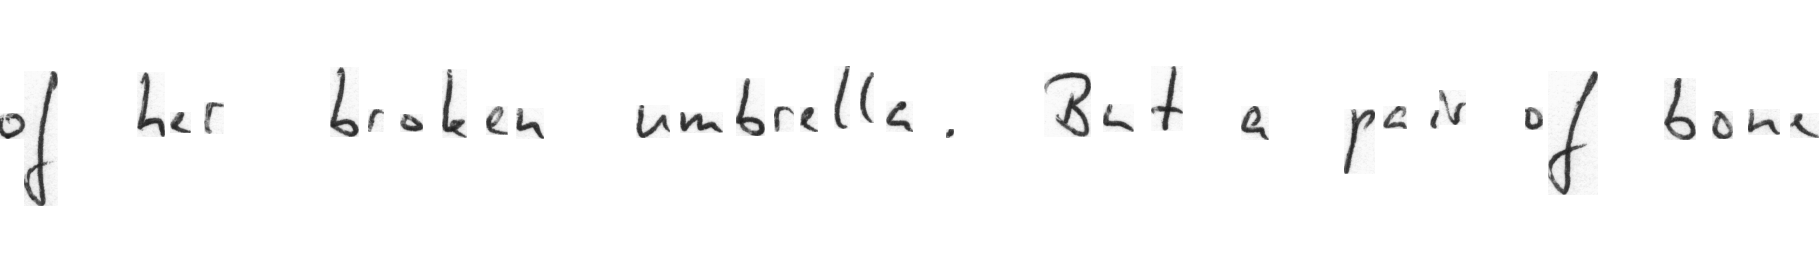 of her broken umbrella. But a pair of bone